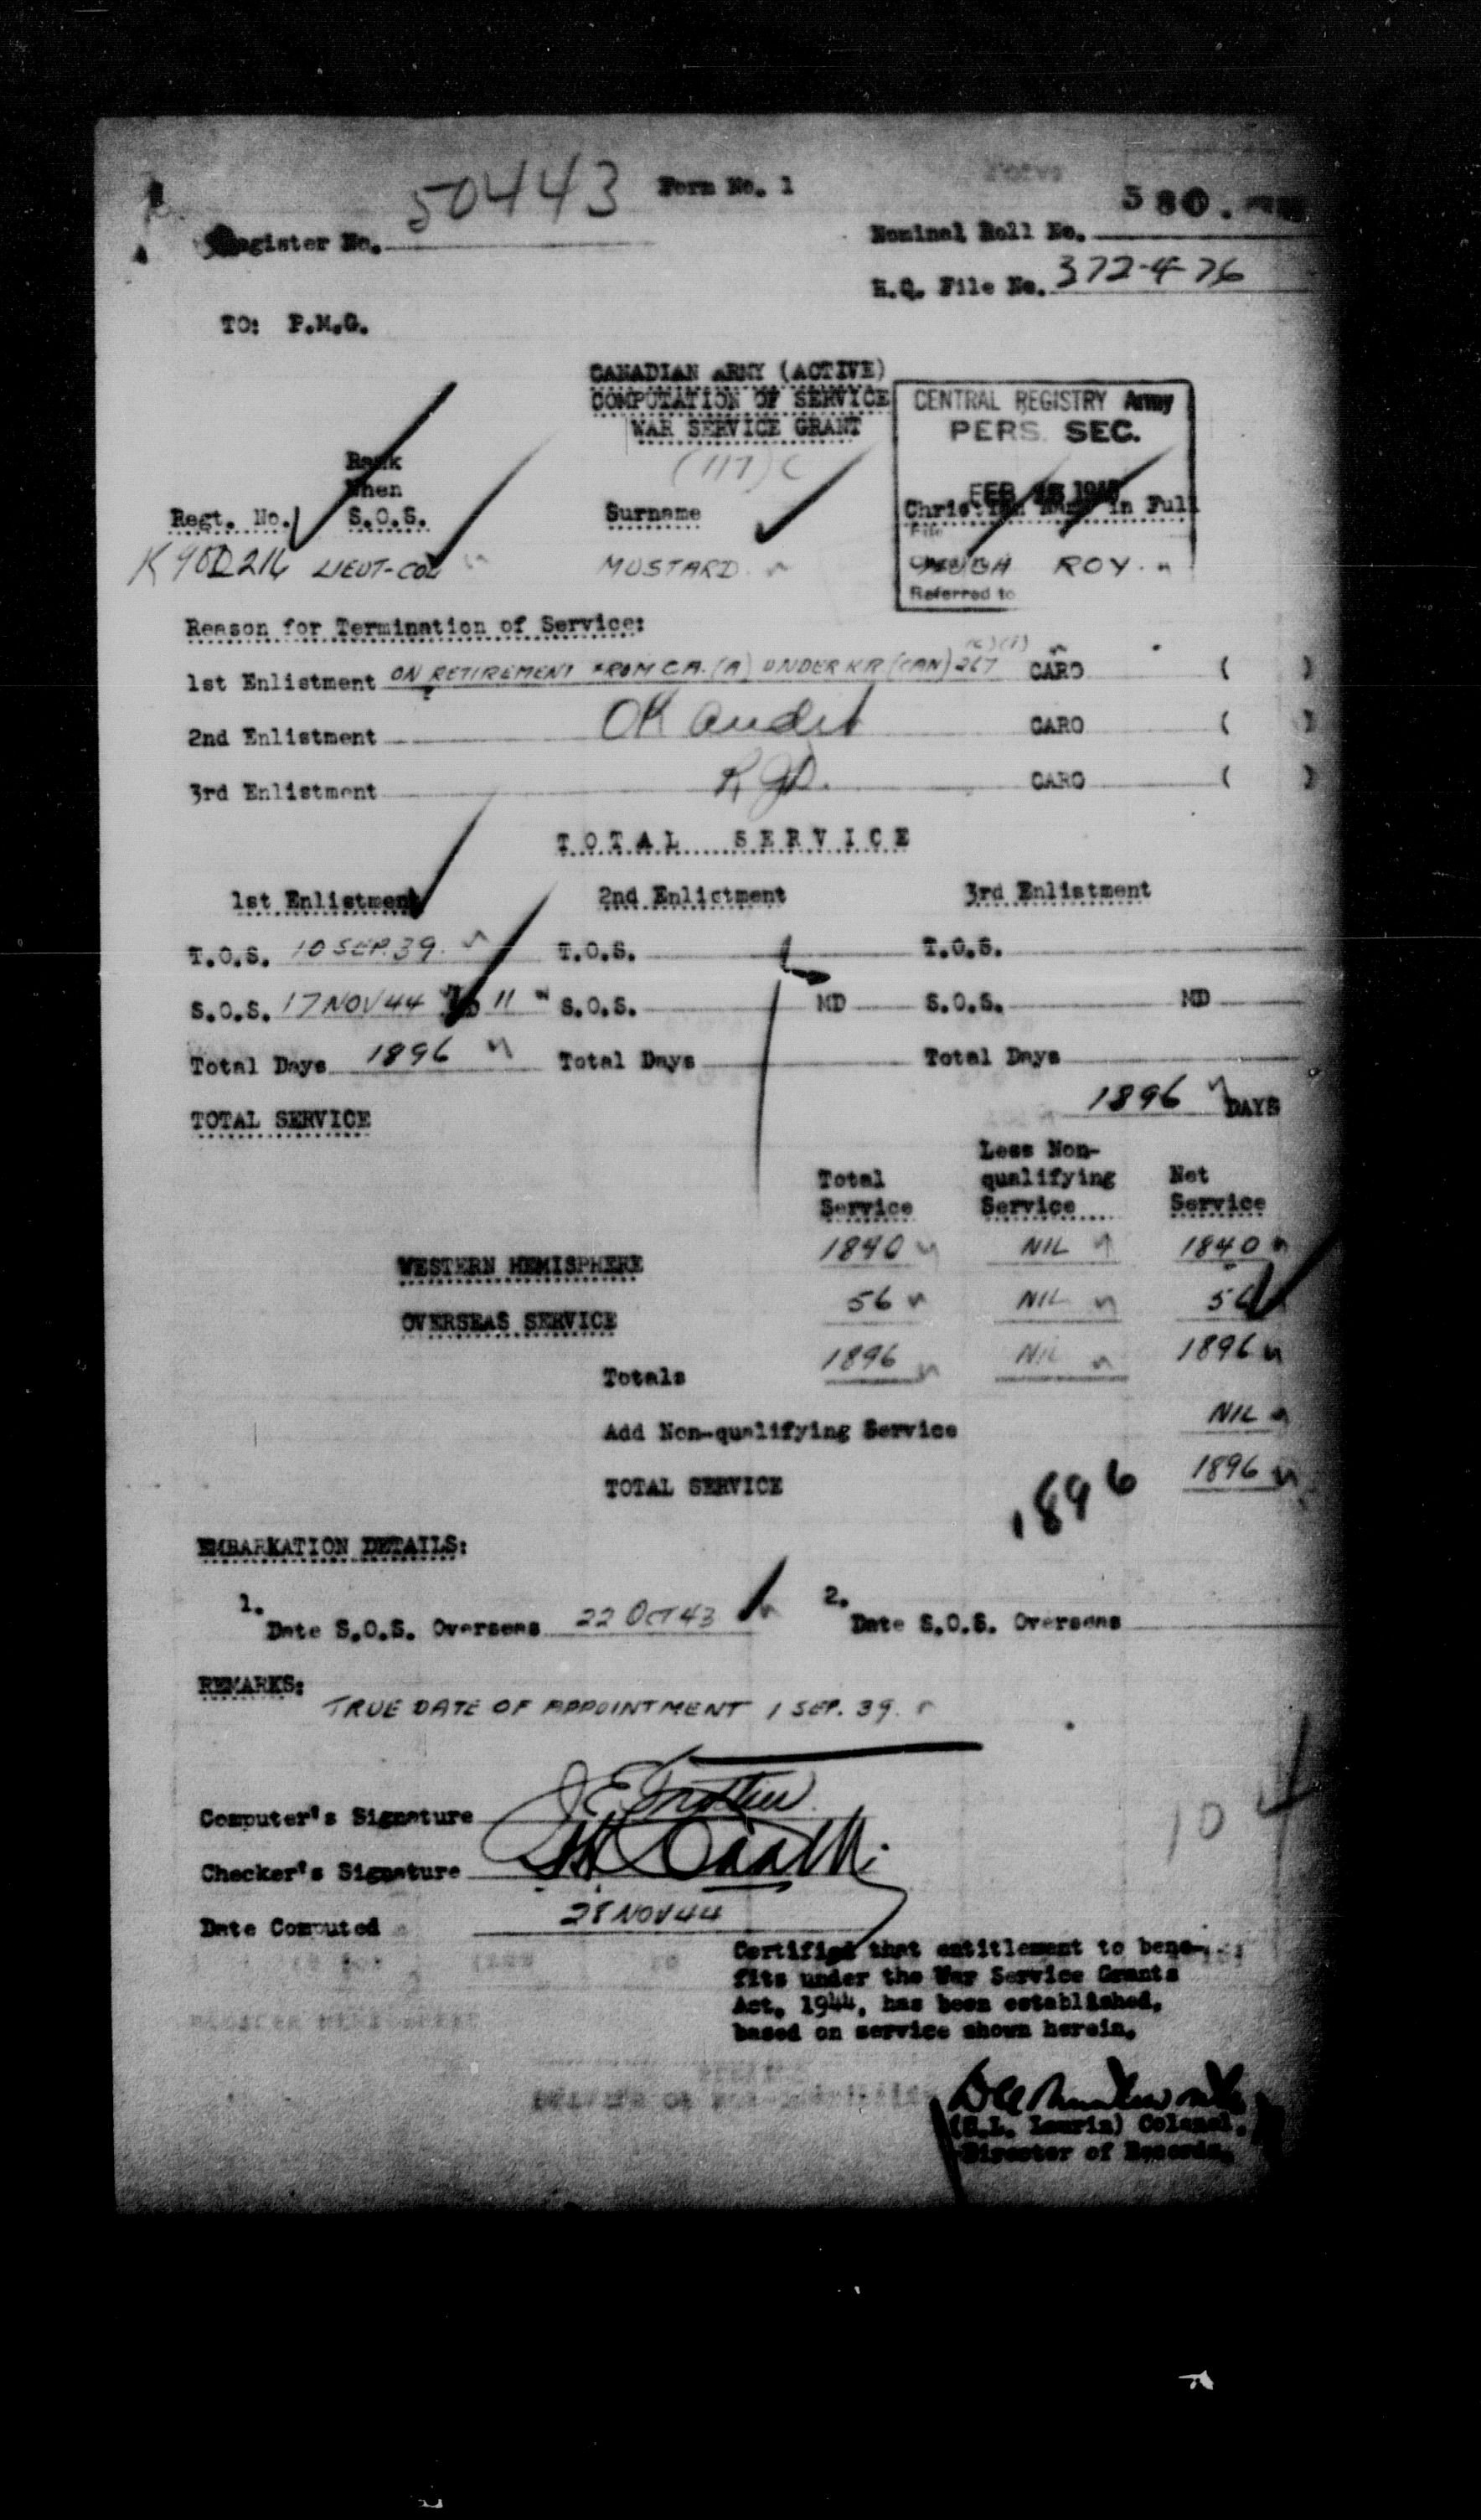 50443 Form No. 1
580.
Register No.
Nominal Roll No.
H.Q. File No. 372-4-76
TO: P.M.G.
CANADIAN ARMY (ACTIVE)
COMPUTATION OF SERVICE
WAR SERVICE GRANT
(117) C
CENTRAL REGISTRY Army
PERS. SEC.
FEB
File
Referred to
Rank
When
Regt. No. S.O.S. Surname Christian Name in Full
LIEUT-COL MUSTARD ROY
Reason for Termination of Service:
1st Enlistment ON RETIREMENT FROM C.A. (A) UNDER KR (CAN) 267 CARO ( )
2nd Enlistment OK audit CARO ( )
3rd Enlistment CARO ( )
TOTAL SERVICE
1st Enlistment 2nd Enlistment 3rd Enlistment
T.O.S. 10 SEP. 39. T.O.S. T.O.S.
S.O.S. 17 NOV 44 MD 11 S.O.S. MD S.O.S. MD
Total Days 1896 Total Days Total Days
TOTAL SERVICE 1896 DAYS
Total Service Less Non-qualifying Service Net Service
WESTERN HEMISPHERE 1840 NIL 1840
OVERSEAS SERVICE 56 NIL 56
Totals 1896 NIL 1896
Add Non-qualifying Service NIL
TOTAL SERVICE 1896 1896
EMBARKATION DETAILS:
1. Date S.O.S. Overseas 22 OCT 43 2. Date S.O.S. Overseas
REMARKS: TRUE DATE OF APPOINTMENT 1 SEP. 39.
104
Computer's Signature
Checker's Signature
Date Computed 28 NOV 44
Certified that entitlement to bene-
fits under the War Service Grants
Act, 1944, has been established,
based on service shown herein.
Laurin) Colonel,
Director of Records.